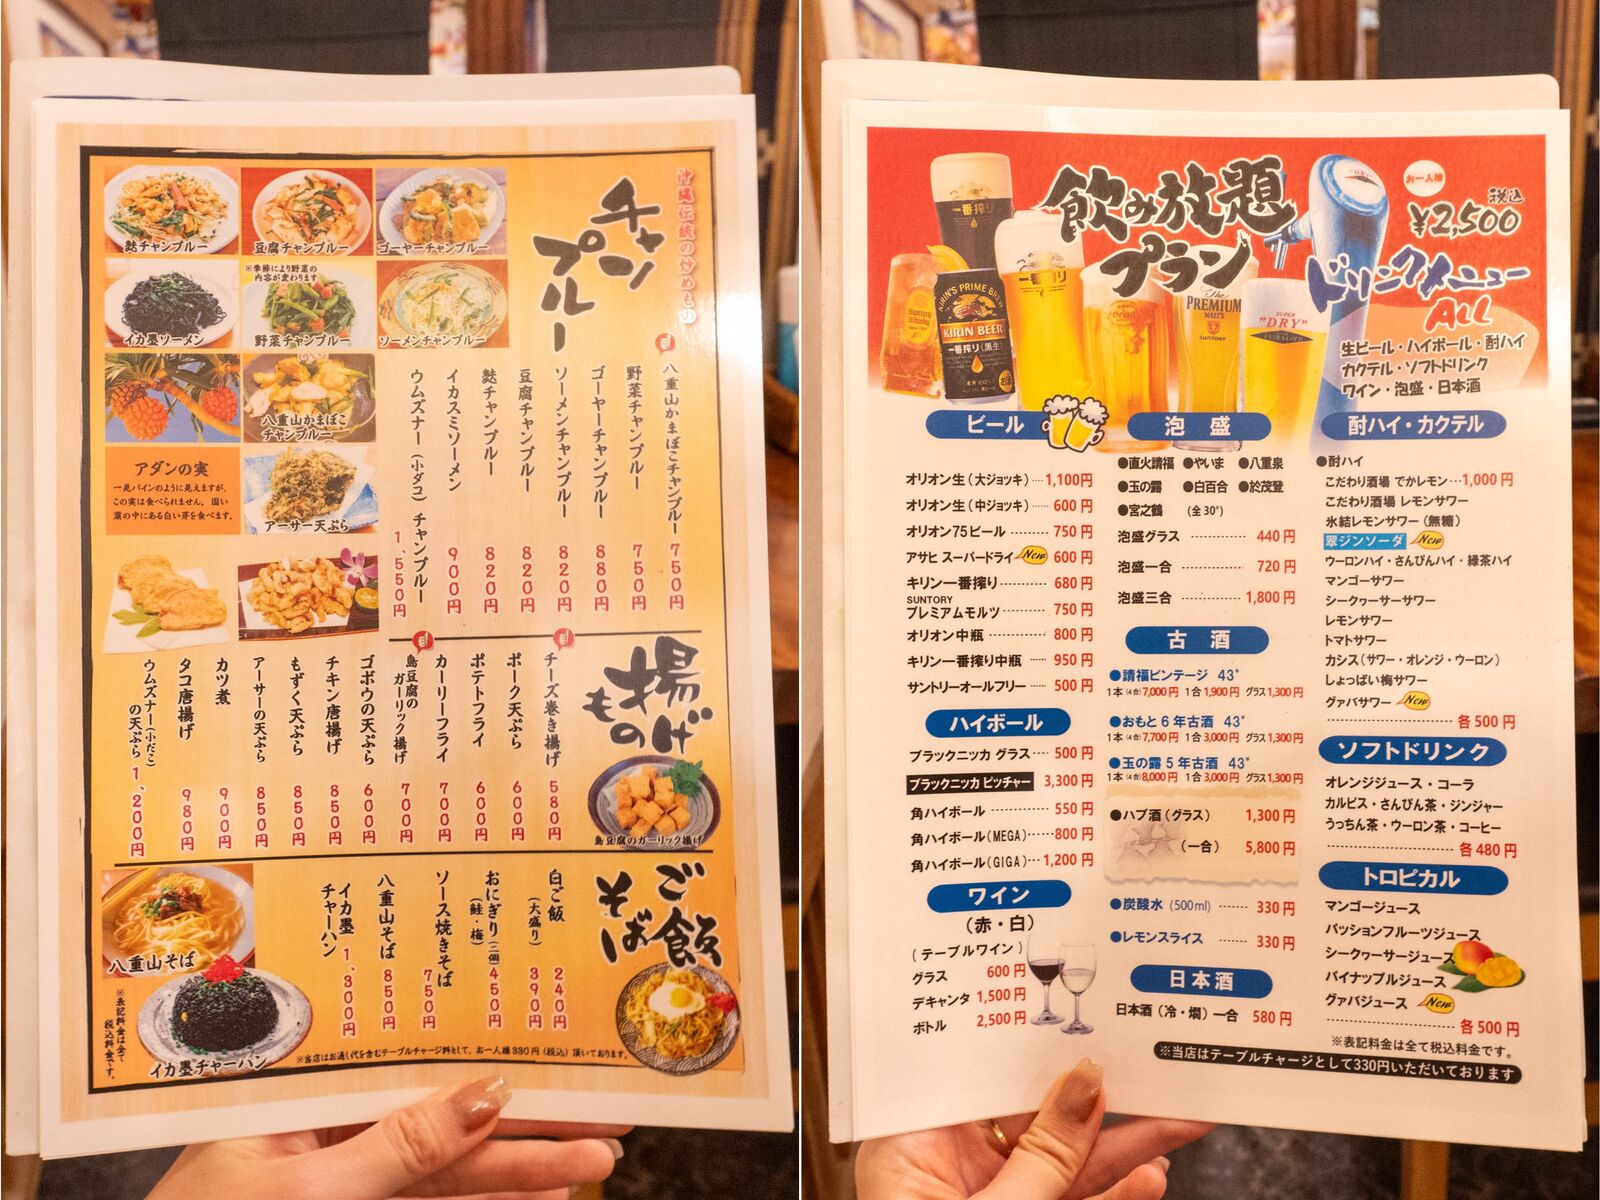 沖縄伝統の炒めもの
チャンプルー
麩チャンプルー
豆腐チャンプルー
ゴーヤーチャンプルー
イカ墨ソーメン
※季節により野菜の
内容が変わります
野菜チャンプルー
ソーメンチャンプルー
八重山かまぼこ
チャンプルー
アダンの実
一見パインのように見えますが、
この実は食べられません。固い
葉の中にある白い芽を食べます。
アーサー天ぷら
八重山かまぼこチャンプルー 750円
野菜チャンプルー 750円
ゴーヤーチャンプルー 880円
ソーメンチャンプルー 820円
豆腐チャンプルー 820円
麩チャンプルー 820円
イカスミソーメン 900円
ウムズナー(小ダコ)チャンプルー 1,550円
揚げもの
チーズ巻き揚げ 580円
ポーク天ぷら 600円
ポテトフライ 600円
カーリーフライ 700円
島豆腐の
ガーリック揚げ 700円
ゴボウの天ぷら 600円
チキン唐揚げ 850円
もずく天ぷら 850円
アーサーの天ぷら 850円
カツ煮 900円
タコ唐揚げ 980円
ウムズナー(小だこ)
の天ぷら 1,200円
島豆腐のガーリック揚げ
ご飯
そば
白ご飯 240円
(大盛り) 390円
おにぎり(二個) 450円
(鮭・梅)
ソース焼きそば 750円
八重山そば 850円
イカ墨
チャーハン 1,300円
八重山そば
イカ墨チャーハン
※表記料金は全て
税込料金です。
※当店はお通し代を含むテーブルチャージ料として、お一人様330円(税込)頂いております。
飲み放題
プラン
お一人様
税込
¥2,500
ドリンクメニュー
ALL
生ビール・ハイボール・酎ハイ
カクテル・ソフトドリンク
ワイン・泡盛・日本酒
一番搾り
KIRIN'S PRIME BREW
KIRIN BEER
一番搾り〈黒生〉
一番搾り
The
PREMIUM
MALT'S
SUNTORY
SUPER
"DRY"
ビール
オリオン生(大ジョッキ) 1,100円
オリオン生(中ジョッキ) 600円
オリオン75ビール 750円
アサヒ スーパードライ New 600円
キリン一番搾り 680円
SUNTORY
プレミアムモルツ 750円
オリオン中瓶 800円
キリン一番搾り中瓶 950円
サントリーオールフリー 500円
ハイボール
ブラックニッカ グラス 500円
ブラックニッカ ピッチャー 3,300円
角ハイボール 550円
角ハイボール(MEGA) 800円
角ハイボール(GIGA) 1,200円
ワイン
(赤・白)
(テーブルワイン)
グラス 600円
デキャンタ 1,500円
ボトル 2,500円
泡盛
●直火請福 ●やいま ●八重泉
●玉の露 ●白百合 ●於茂登
●宮之鶴 (全30°)
泡盛グラス 440円
泡盛一合 720円
泡盛三合 1,800円
古酒
●請福ビンテージ 43°
1本(4合)7,000円 1合1,900円 グラス1,300円
●おもと6年古酒 43°
1本(4合)7,700円 1合3,000円 グラス1,300円
●玉の露5年古酒 43°
1本(4合)8,000円 1合3,000円 グラス1,300円
●ハブ酒(グラス) 1,300円
(一合) 5,800円
●炭酸水(500ml) 330円
●レモンスライス 330円
日本酒
日本酒(冷・燗)一合 580円
酎ハイ・カクテル
●酎ハイ
こだわり酒場 でかレモン 1,000円
こだわり酒場 レモンサワー
氷結レモンサワー(無糖)
翠ジンソーダ New
ウーロンハイ・さんぴんハイ・緑茶ハイ
マンゴーサワー
シークヮーサーサワー
レモンサワー
トマトサワー
カシス(サワー・オレンジ・ウーロン)
しょっぱい梅サワー
グァバサワー New
各500円
ソフトドリンク
オレンジジュース・コーラ
カルピス・さんぴん茶・ジンジャー
うっちん茶・ウーロン茶・コーヒー
各480円
トロピカル
マンゴージュース
パッションフルーツジュース
シークヮーサージュース
パイナップルジュース
グァバジュース New
各500円
※表記料金は全て税込料金です。
※当店はテーブルチャージとして330円いただいております